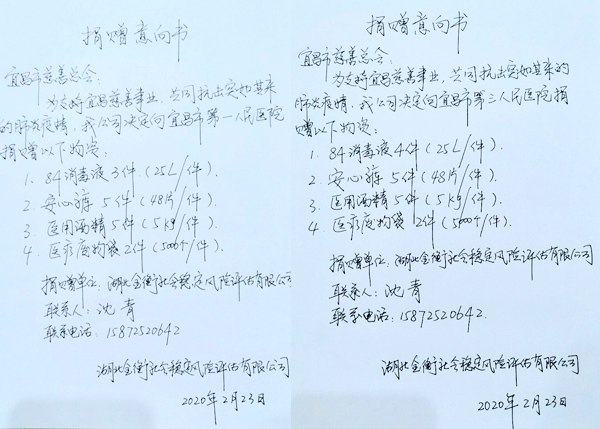 捐赠意向书
宜昌市慈善总会:
为支持宜昌慈善事业,共同抗击突如其来
的肺炎疫情,我公司决定向宜昌市第一人民医院
捐赠以下物资:
1. 84消毒液3件(25L/件).
2. 安心裤 5件(48片/件).
3. 医用酒精5件(5kg/件)
4. 医疗废物袋2件(500个/件).
捐赠单位:湖北全衡社会稳定风险评估有限公司
联系人:沈青
联系电话:15872520642
湖北全衡社会稳定风险评估有限公司
2020年2月23日
捐赠意向书
宜昌市慈善总会:
为支持宜昌慈善事业,共同抗击突如其来的
肺炎疫情,我公司决定向宜昌市第三人民医院捐
赠以下物资:
1. 84消毒液4件(25L/件).
2. 安心裤 5件(48片/件).
3. 医用酒精5件(5kg/件)
4. 医疗废物袋 2件(500个/件).
捐赠单位:湖北全衡社会稳定风险评估有限公司
联系人:沈青
联系电话:15872520642.
湖北全衡社会稳定风险评估有限公司
2020年2月23日